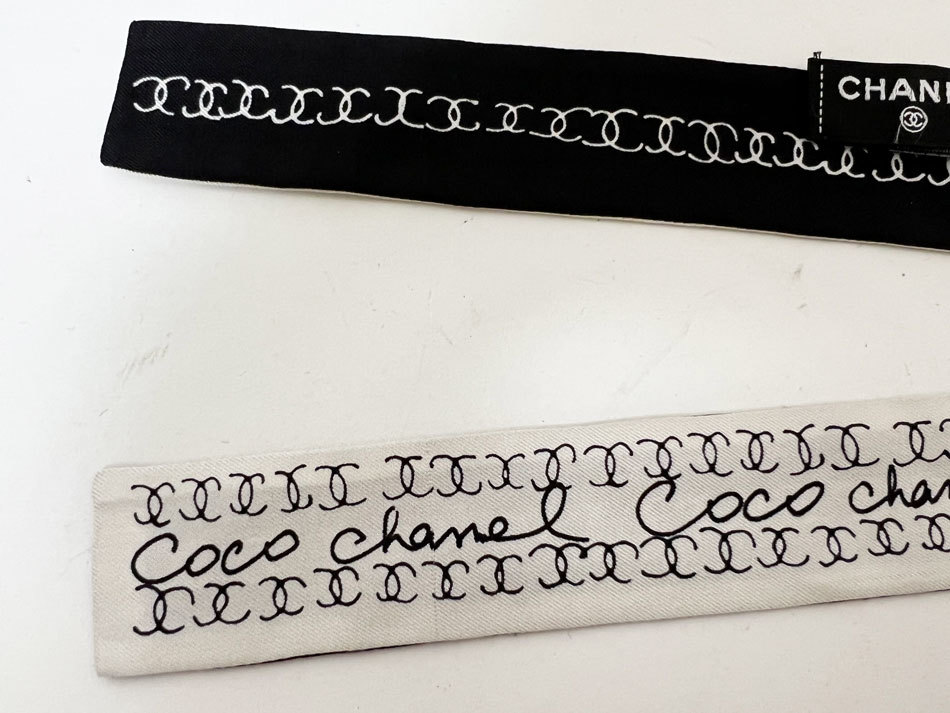 CHANE
Coco chanel Coco chan